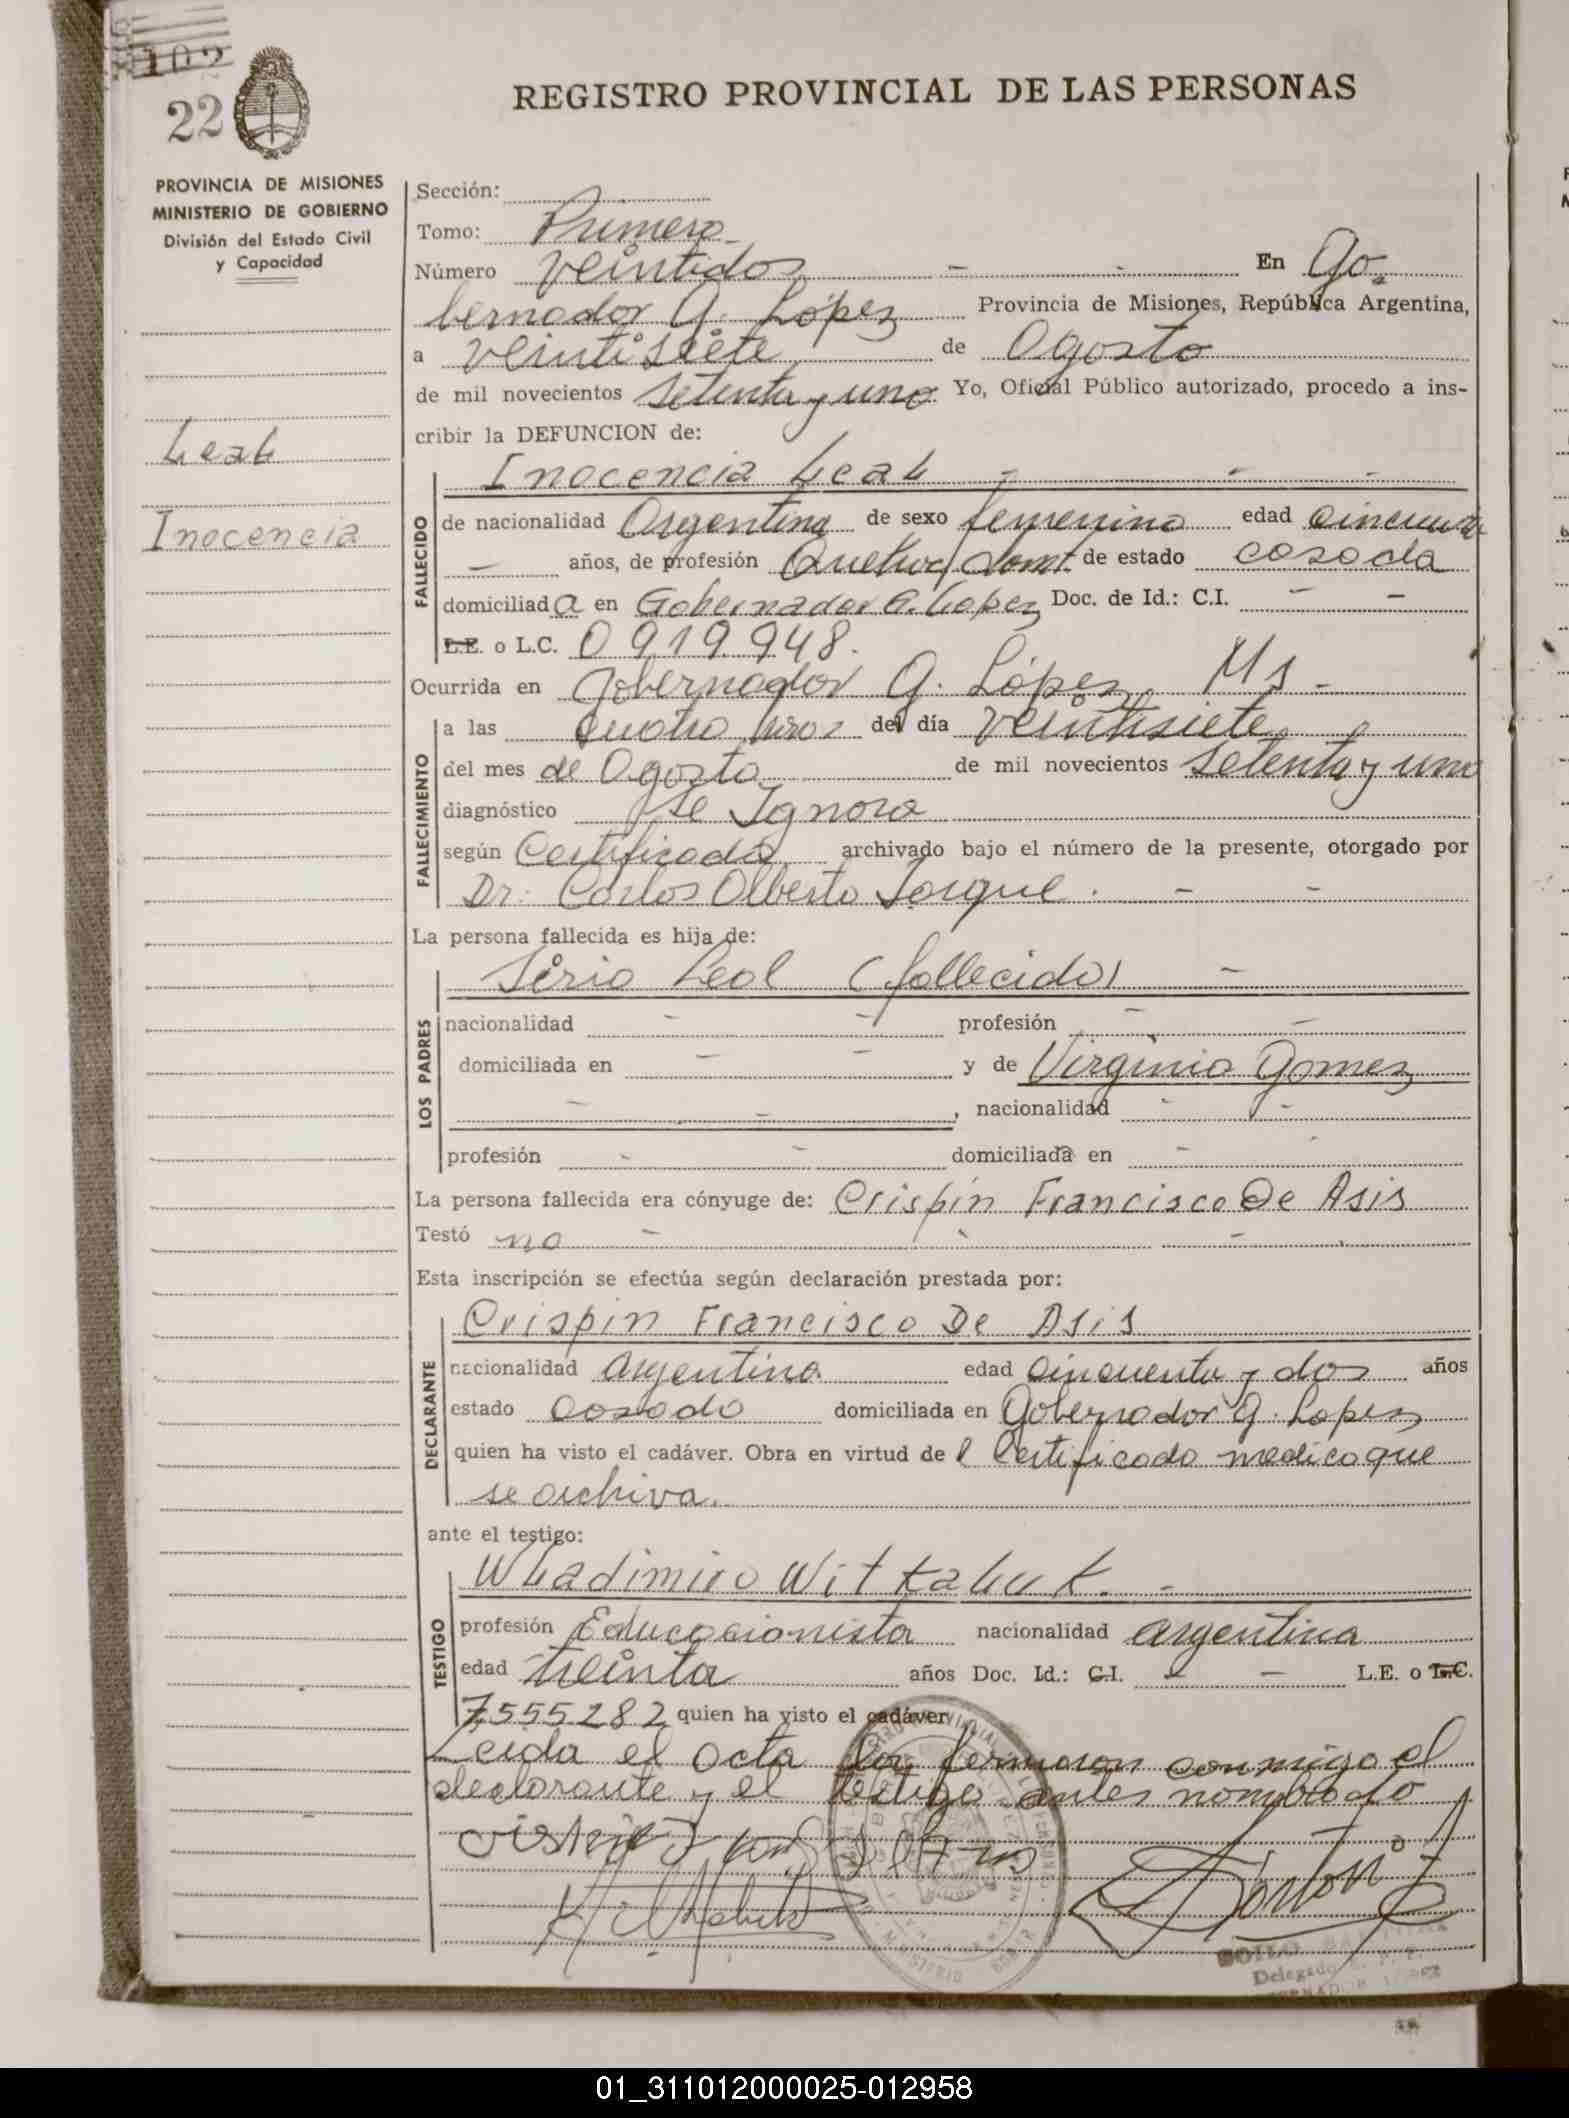 102
22
REGISTRO PROVINCIAL DE LAS PERSONAS
PROVINCIA DE MISIONES
MINISTERIO DE GOBIERNO
División del Estado Civil
y Capacidad
Leal
Inocencia
Sección:
Tomo: Primero
Número veintidos - - En Go-
bernador G. López Provincia de Misiones, República Argentina,
a veintisiete de Agosto
de mil novecientos setenta y uno Yo, Oficial Público autorizado, procedo a ins-
cribir la DEFUNCION de:
Inocencia Leal - - -
FALLECIDO
de nacionalidad Argentina de sexo femenino edad cincuenta
- años, de profesión Quehac/domt. de estado casada
domiciliada en Gobernador G. Lopez Doc. de Id.: C.I. - -
L.E. o L.C. 0919948.
Ocurrida en Gobernador G. López Ms -
FALLECIMIENTO
a las cuatro hras del día veintisiete
del mes de Agosto de mil novecientos setenta y uno
diagnóstico se Ignora
según Certificado archivado bajo el número de la presente, otorgado por
Dr: Carlos Alberto - -
La persona fallecida es hija de:
LOS PADRES
Sirio Leal (fallecido) -
nacionalidad - - profesión - -
domiciliada en - - y de Virginia Gomez
- - , nacionalidad - -
profesión - - domiciliada en -
La persona fallecida era cónyuge de: Crispín Francisco De Asis
Testó no - - -
Esta inscripción se efectúa según declaración prestada por:
DECLARANTE
Crispin Francisco De Asis
nacionalidad argentina edad cincuenta y dos años
estado casado domiciliada en Gobernador G. Lopez
quien ha visto el cadáver. Obra en virtud del Certificado medico que
se archiva.
ante el testigo:
TESTIGO
Wladimiro Witkaluk. -
profesión Educacionista nacionalidad argentina
edad treinta años Doc. Id.: C.I. - - L.E. o L.C.
7555282 quien ha visto el cadáver
Leida el acta la firmaron conmigo el
declarante y el testigo antes nombrado
Delegado
01_311012000025-012958